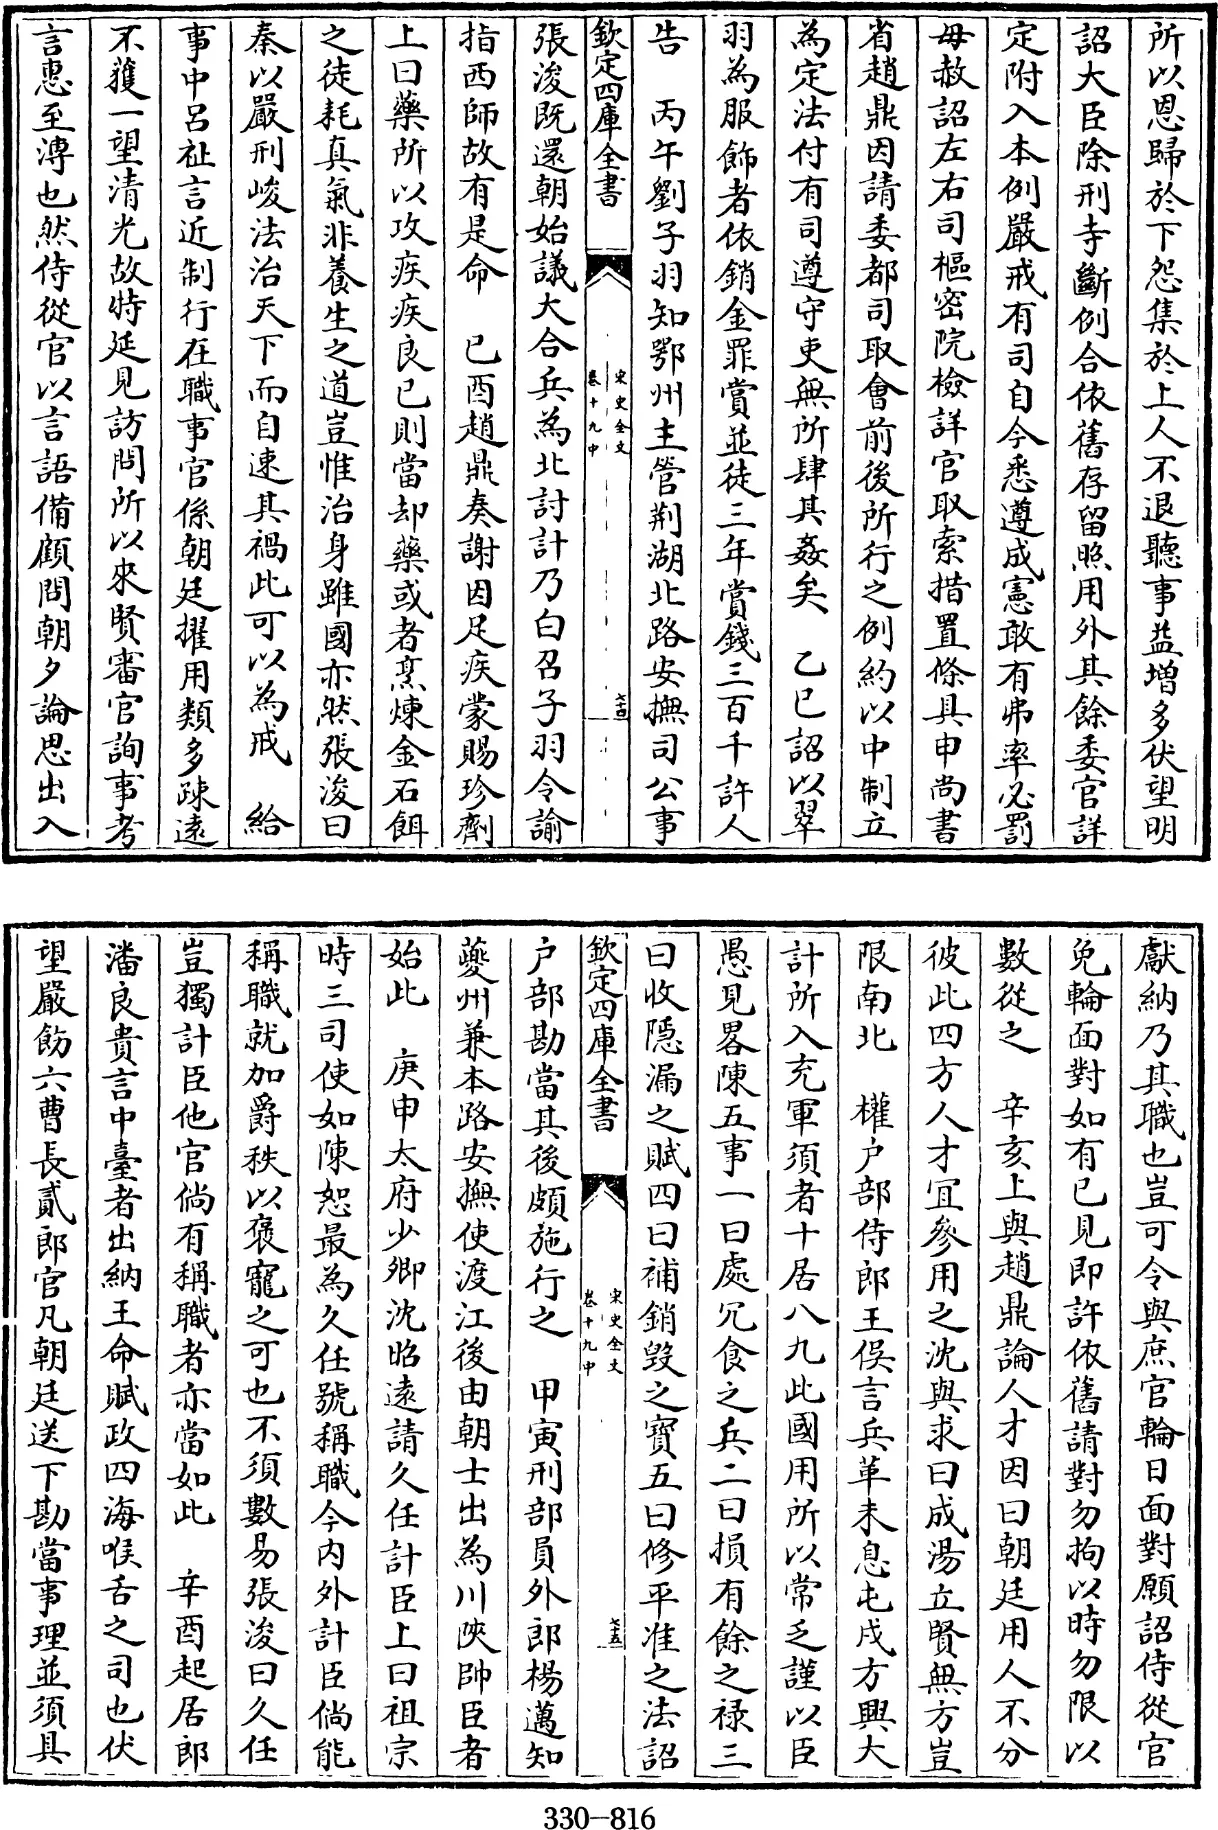 所以恩歸於下怨集於上人不退聽事益增多伏望明
詔大臣除刑寺斷例合依舊存留照用外其餘委官詳
定附入本例嚴戒有司自今悉遵成憲敢有弗率必罰
毋赦詔左右司樞密院檢詳官取索措置條具申尚書
省趙鼎因請委都司取會前後所行之例約以中制立
為定法付有司遵守吏無所肆其姦矣　乙巳詔以翠
羽為服飾者依銷金罪賞並徒三年賞錢三百千許人
告　丙午劉子羽知鄂州主管荆湖北路安撫司公事
欽定四庫全書
宋史全文
卷十九中
七十四
張浚既還朝始議大合兵為北討計乃白召子羽令諭
指西師故有是命　己酉趙鼎奏謝因足疾蒙賜珍劑
上曰藥所以攻疾疾良已則當却藥或者烹煉金石餌
之徒耗真氣非養生之道豈惟治身雖國亦然張浚曰
秦以嚴刑峻法治天下而自速其禍此可以為戒　給
事中呂祉言近制行在職事官係朝廷擢用類多踈遠
不獲一望清光故特延見訪問所以來賢審官詢事考
言惠至溥也然侍從官以言語備顧問朝夕論思出入
獻納乃其職也豈可令與庶官輪日面對願詔侍從官
免輪面對如有已見即許依舊請對勿拘以時勿限以
數從之　辛亥上與趙鼎論人才因曰朝廷用人不分
彼此四方人才冝參用之沈與求曰成湯立賢無方豈
限南北　權户部侍郎王俣言兵革未息屯戍方興大
計所入充軍須者十居八九此國用所以常乏謹以臣
愚見畧陳五事一曰處冗食之兵二曰損有餘之禄三
曰收隱漏之賦四曰補銷毀之寳五曰修平准之法詔
欽定四庫全書
宋史全文
卷十九中
七十五
户部勘當其後頗施行之　甲寅刑部員外郎楊邁知
夔州兼本路安撫使渡江後由朝士出為川陝帥臣者
始此　庚申太府少卿沈昭遠請久任計臣上曰祖宗
時三司使如陳恕最為久任號稱職今内外計臣倘能
稱職就加爵秩以褒寵之可也不須數易張浚曰久任
豈獨計臣他官倘有稱職者亦當如此　辛酉起居郎
潘良貴言中臺者出納王命賦政四海喉舌之司也伏
望嚴飭六曹長貳郎官凡朝廷送下勘當事理並須具
330-816